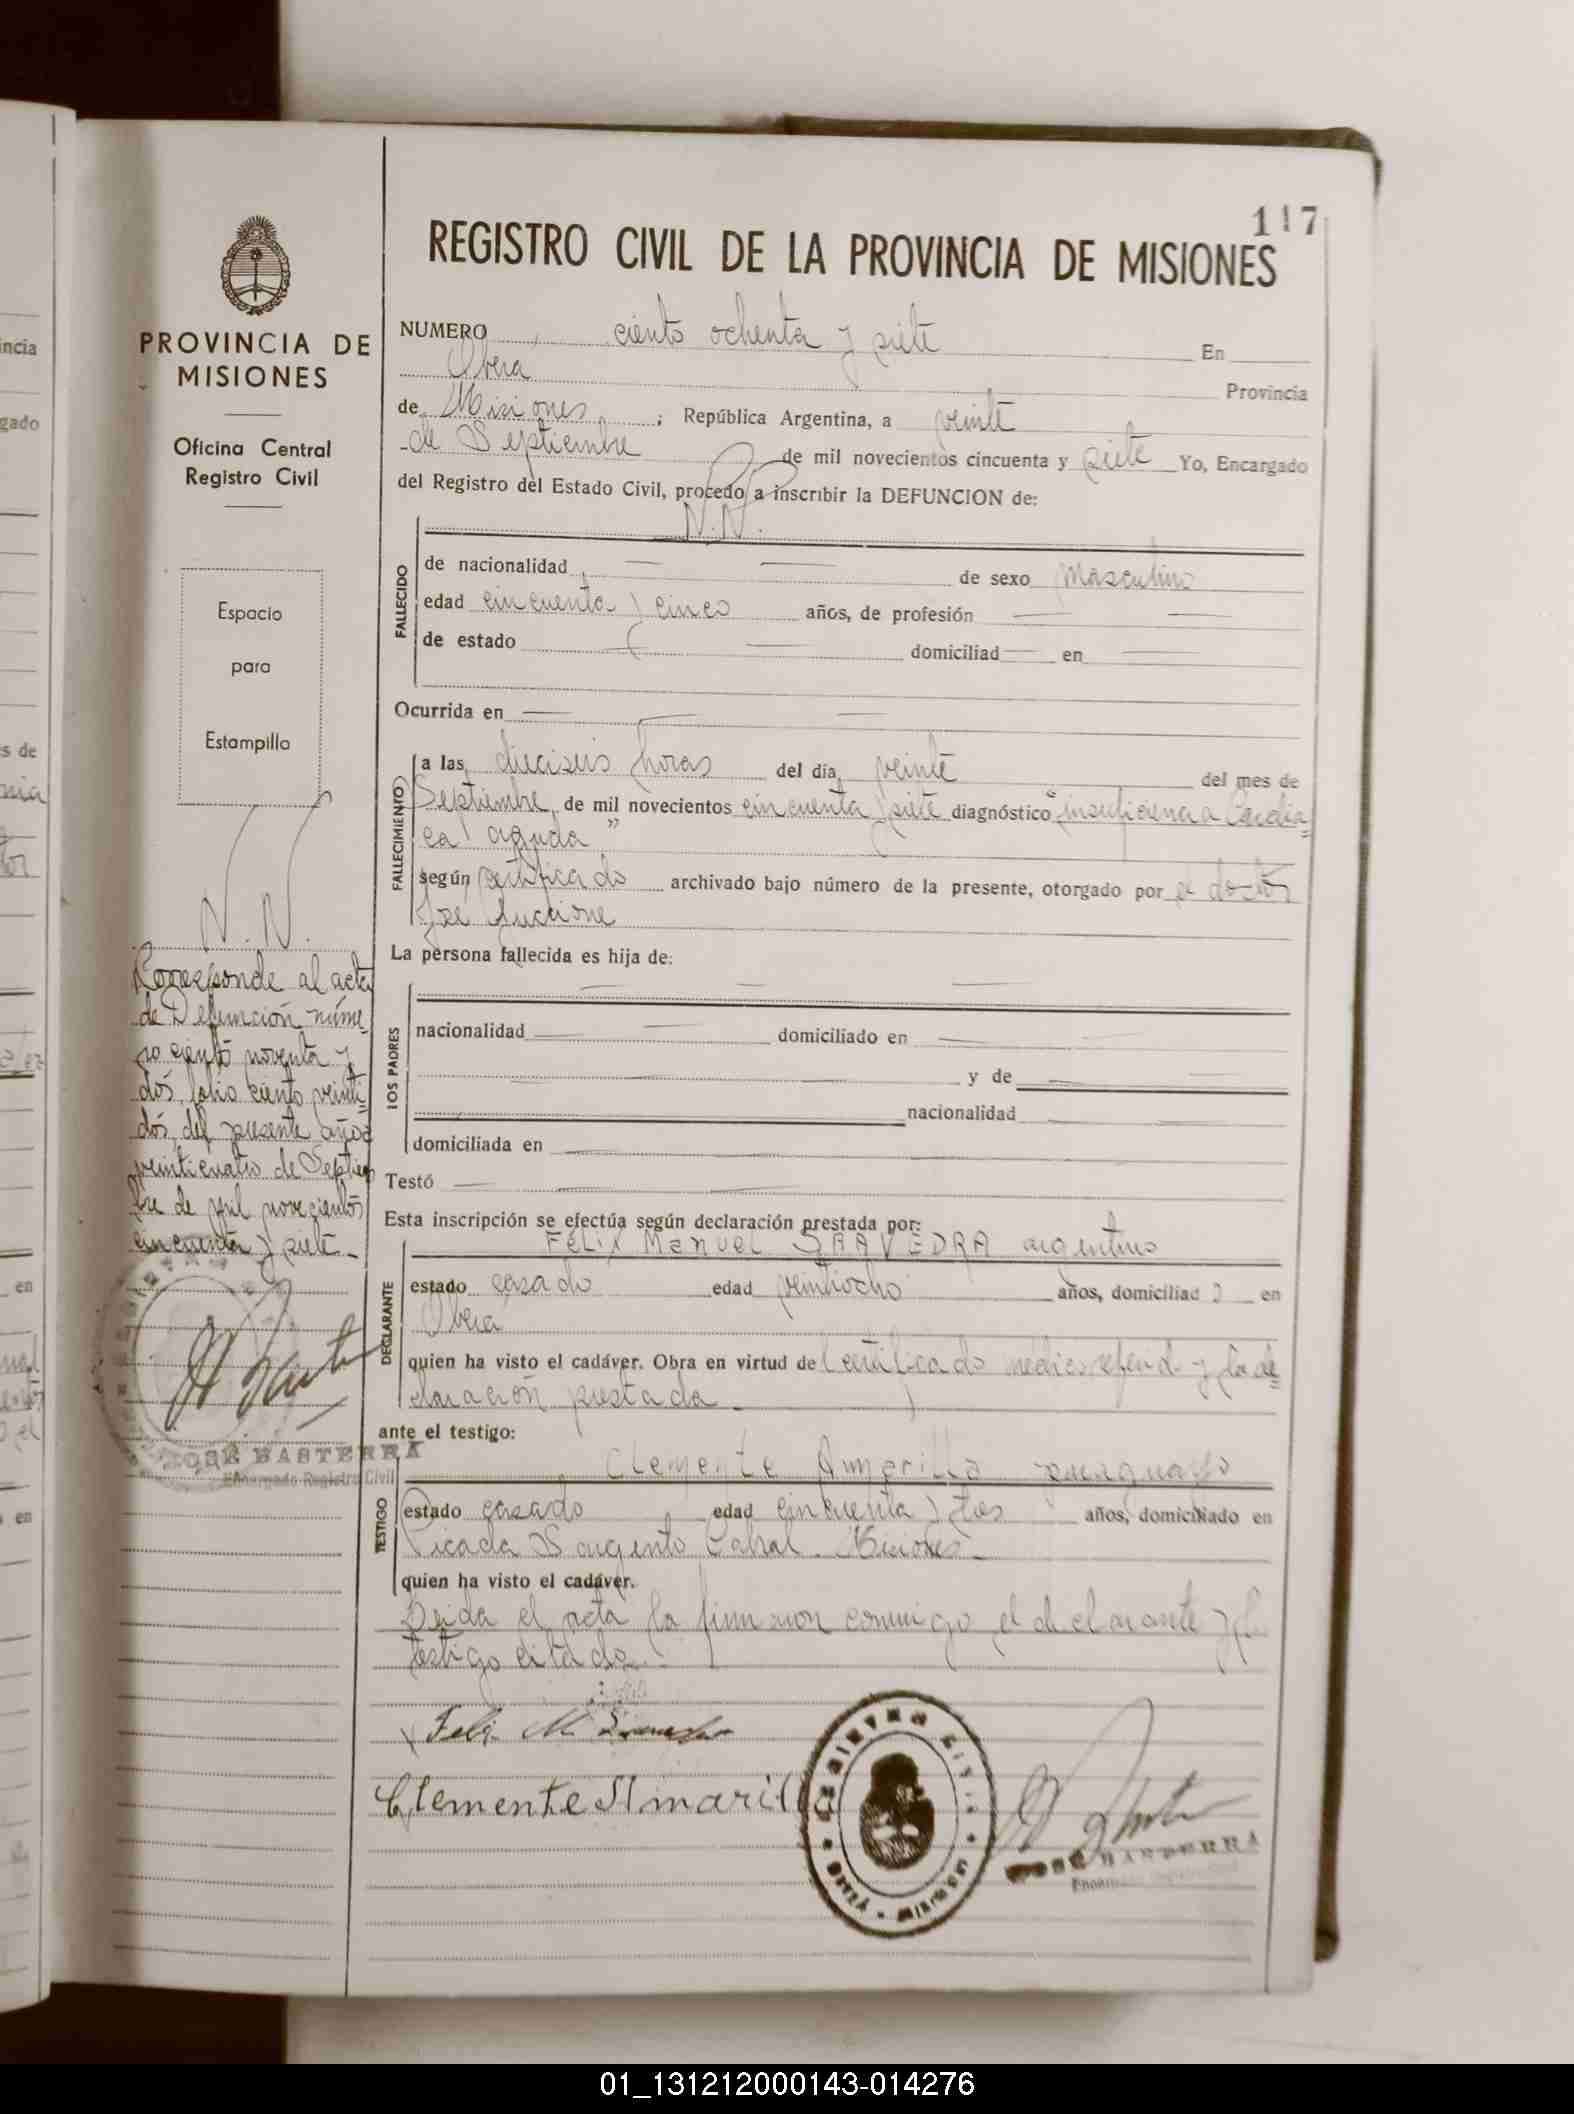 117
REGISTRO CIVIL DE LA PROVINCIA DE MISIONES
PROVINCIA DE
MISIONES
Oficina Central
Registro Civil
Espacio
para
Estampilla
N. N.
Corresponde al acta
de Defunción núme-
ro ciento noventa y
dos, folio ciento veinti-
dós, del presente año
veinticuatro de Septiem
bre de mil novecientos
cincuenta y siete.-
JOSÉ BASTERRA
Encargado Registro Civil
NUMERO ciento ochenta y siete En
Oberá Provincia
de Misiones ; República Argentina, a veinte
de Septiembre de mil novecientos cincuenta y siete Yo, Encargado
del Registro del Estado Civil, procedo a inscribir la DEFUNCION de:
N.N.
FALLECIDO
de nacionalidad — — de sexo Masculino
edad cincuenta y cinco años, de profesión — —
de estado — domiciliad — en —
Ocurrida en — — —
FALLECIMIENTO
a las dieciseis horas del día veinte del mes de
Septiembre de mil novecientos cincuenta y siete diagnóstico "insuficiencia Cardia-
ca aguda"
según certificado archivado bajo número de la presente, otorgado por el doctor
José
La persona fallecida es hija de:
LOS PADRES
nacionalidad — — domiciliado en —
— — y de — —
nacionalidad
domiciliada en — —
Testó — — —
Esta inscripción se efectúa según declaración prestada por:
DECLARANTE
Félix Manuel SAAVEDRA argentino
estado casado edad veintiocho años, domiciliad o en
Oberá
quien ha visto el cadáver. Obra en virtud del certificado médico referid y la de-
claración prestada.
ante el testigo:
TESTIGO
Clemente Amarilla paraguayo
estado casado edad cincuenta y tres años, domiciliado en
Picada Sargento Cabral. Misiones.-
quien ha visto el cadáver.
Leida el acta la firmaron conmigo el declarante y el
testigo citado.
Felix M. Saavedra
Clemente Amarilla
REGISTRO CIVIL
OBERA MISIONES
JOSE BASTERRA
01_131212000143-014276